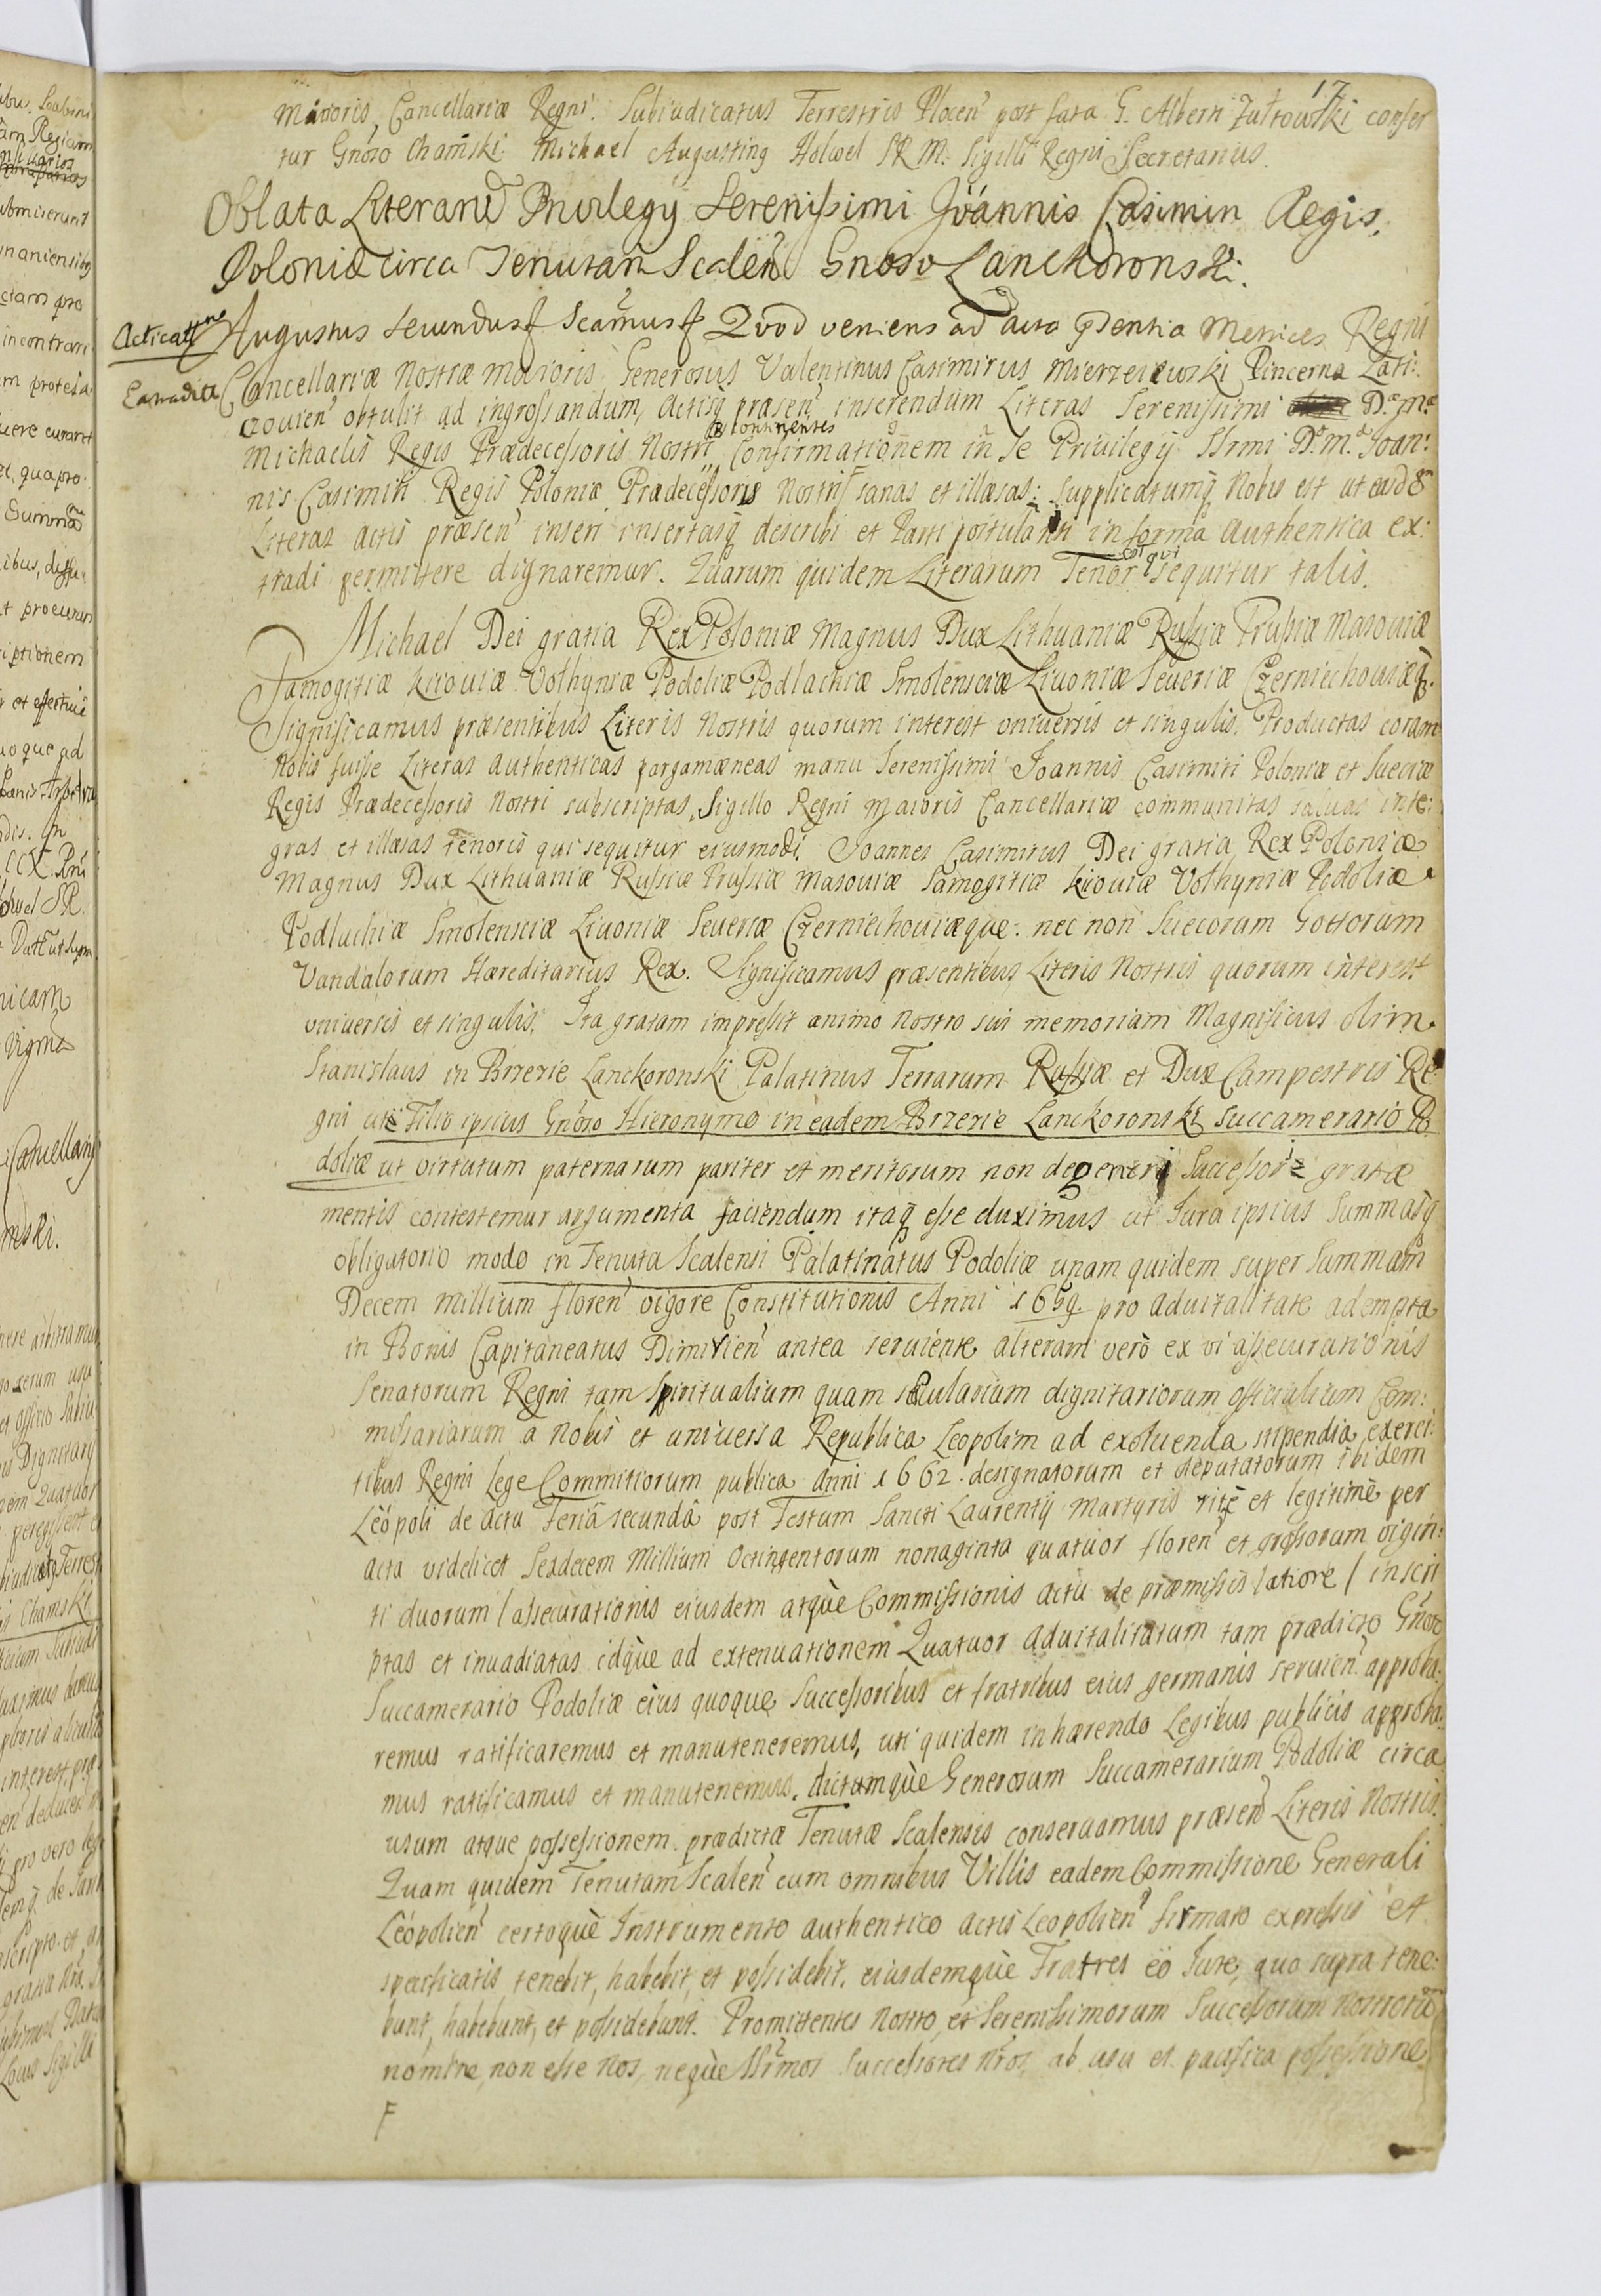 17
Maioris Cancellariæ Regni. Subiudicatus Terrestris Plocen̄ post fata G. Alberti Zułtowski confer
tur Gnoso Chamski. Michael Augusting Holwel SRM. Sigilli Regni Secretarius.
Oblata Literarū Priuilegy Serenissimi Joannis Casimiri Regis
Poloniæ circa Tenutam Scalen̄ Gnoso Lanckoronski.
Acticatne
Augustus Secundus Scāmus Quod veniens ad acta p̄dentia Metrices Regni
Extradita
Cancellariæ Nostræ maioris Generosus Valentinus Casimirus Mierzeiewski Pincerna Lati:
czouien̄ obtulit ad ingrossandum, actisq præsen̄ inserendum Literas Serenissimi D. M.
continentes
Michaelis Regis Prædecessoris Nostri Confirmationem in se Priuilegy SSrmi D. M. Joan:
nis Casimiri Regis Poloniæ Prædecessoris Nostri sanas et illæsas: supplicatumq Nobis est ut easdē
Literas actis præsen̄ inseri insertasq describi et Parti postulanti in forma authentica ex:
tradi permittere dignaremur. Quarum quidem Literarum Tenor sequitur talis.
Michael Dei gratia Rex Poloniæ Magnus Dux Lithuaniæ Russiæ Prussiæ Masouiæ
Samogitiæ Kiiouiæ Volhyniæ Podoliæ Podlachiæ Smolensciæ Liuoniæ Seueriæ Czerniechouiæq.
Significamus præsentibus Literis Nostris quorum interest vniuersis et singulis. Productas coram
Nobis fuisse Literas authenticas pargamæneas manu Serenissimi Joannis Casimiri Poloniæ et Sueciæ
Regis Prædecessoris Nostri subscriptas, Sigillo Regni Maioris Cancellariæ communitas saluas inte:
gras et illæsas tenoris qui sequitur eiusmodi. Joannes Casimirus Dei gratia Rex Poloniæ
Magnus Dux Lithuaniæ Russiæ Prussiæ Masouiæ Samogitiæ Kiouiæ Volhyniæ Podoliæ
Podlachiæ Smolensciæ Liuoniæ Seueriæ Czerniechouiæque: nec non Suecorum Gottorum
Vandalorum Hæreditarius Rex. Significamus præsentibus Literis Nostris quorum interest
vniuersis et singulis. Ita gratam impressit animo Nostro sui memoriam Magnificus olim
Stanislaus in Brzezie Lanckoronski Palatinus Terrarum Russiæ et Dux Campestris Re
gni uti Filio ipsius Gnoso Hieronymo in eadem Brzezie Lanckoronski Succamerario Po
doliæ ut virtutum paternarum pariter et meritorum non degeneri Successori gratæ
mentis contestemur argumenta faciendum itaq esse duximus ut Jura ipsius Summasq
obligatorio modo in Tenuta Scalensi Palatinatus Podoliæ unam quidem super Summam
Decem Millium floren̄ vigore Constitutionis Anni 1659 pro aduitalitate adempta
in Bonis Capitaneatus Dimiren̄ antea seruiente alteram verò ex vi assecurationis
Senatorum Regni tam Spiritualium quam sæcularium dignitariorum officialium Com:
missariarum a Nobis et uniuersa Republica Leopolim ad exoluenda stipendia exerci:
tibus Regni Lege Commitiorum publica Anni 1662 designatorum et deputatorum ibidem
Leopoli de actu Feriâ secundâ post Festum Sancti Laurenty Martyris ritè et legitimè per
acta videlicet Sexdecem Millium Octingentorum nonaginta quatuor floren̄ et grossorum vigin:
ti duorum / assecurationis eiusdem atquè Commissionis actu de præmissis latiore / inscri
ptas et inuadiatas idquè ad extenuationem Quatuor aduitalitatum tam prædicto Gnoso
Succamerario Podoliæ eius quoque Successoribus et fratribus eius germanis seruien̄ approba:
remus ratificaremus et manuteneremus, uti quidem inhærendo Legibus publicis approba
mus ratificamus et manutenemus, dictumquè Generosum Succamerarium Podoliæ circa
usum atque possessionem prædictæ Tenutæ Scalensis conseruamus præsen̄ Literis Nostris.
Quam quidem Tenutam Scalen̄ cum omnibus Villis eadem Commissione Generali
Léopolien̄ certoquè Instrumento authentico actis Leopolien̄ firmato expressis et
specificatis, tenebit, habebit, et possidebit, eiusdemquè Fratres eo Jure, quo supra tene:
bunt, habebunt, et possidebunt. Promittentes Nostro, et Serenissimorum Successorum Nostrorū
nomine, non esse Nos, nequè SSrmos Successores Nros, ab usu et pacifica possessione
F